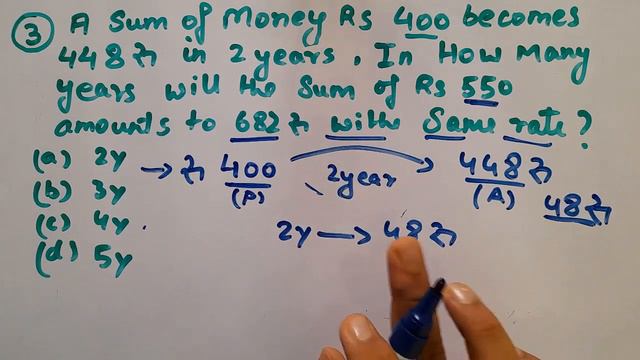 ③ A Sum of Money Rs 400 becomes
448₹ in 2 years. In How Many
years will the Sum of Rs 550
amounts to 682₹ withe Same rate?
(a) 2y
(b) 3y
(c) 4y
(d) 5y
→ ₹ 400 2year 448₹
(P) (A)
48₹
2y → 48₹